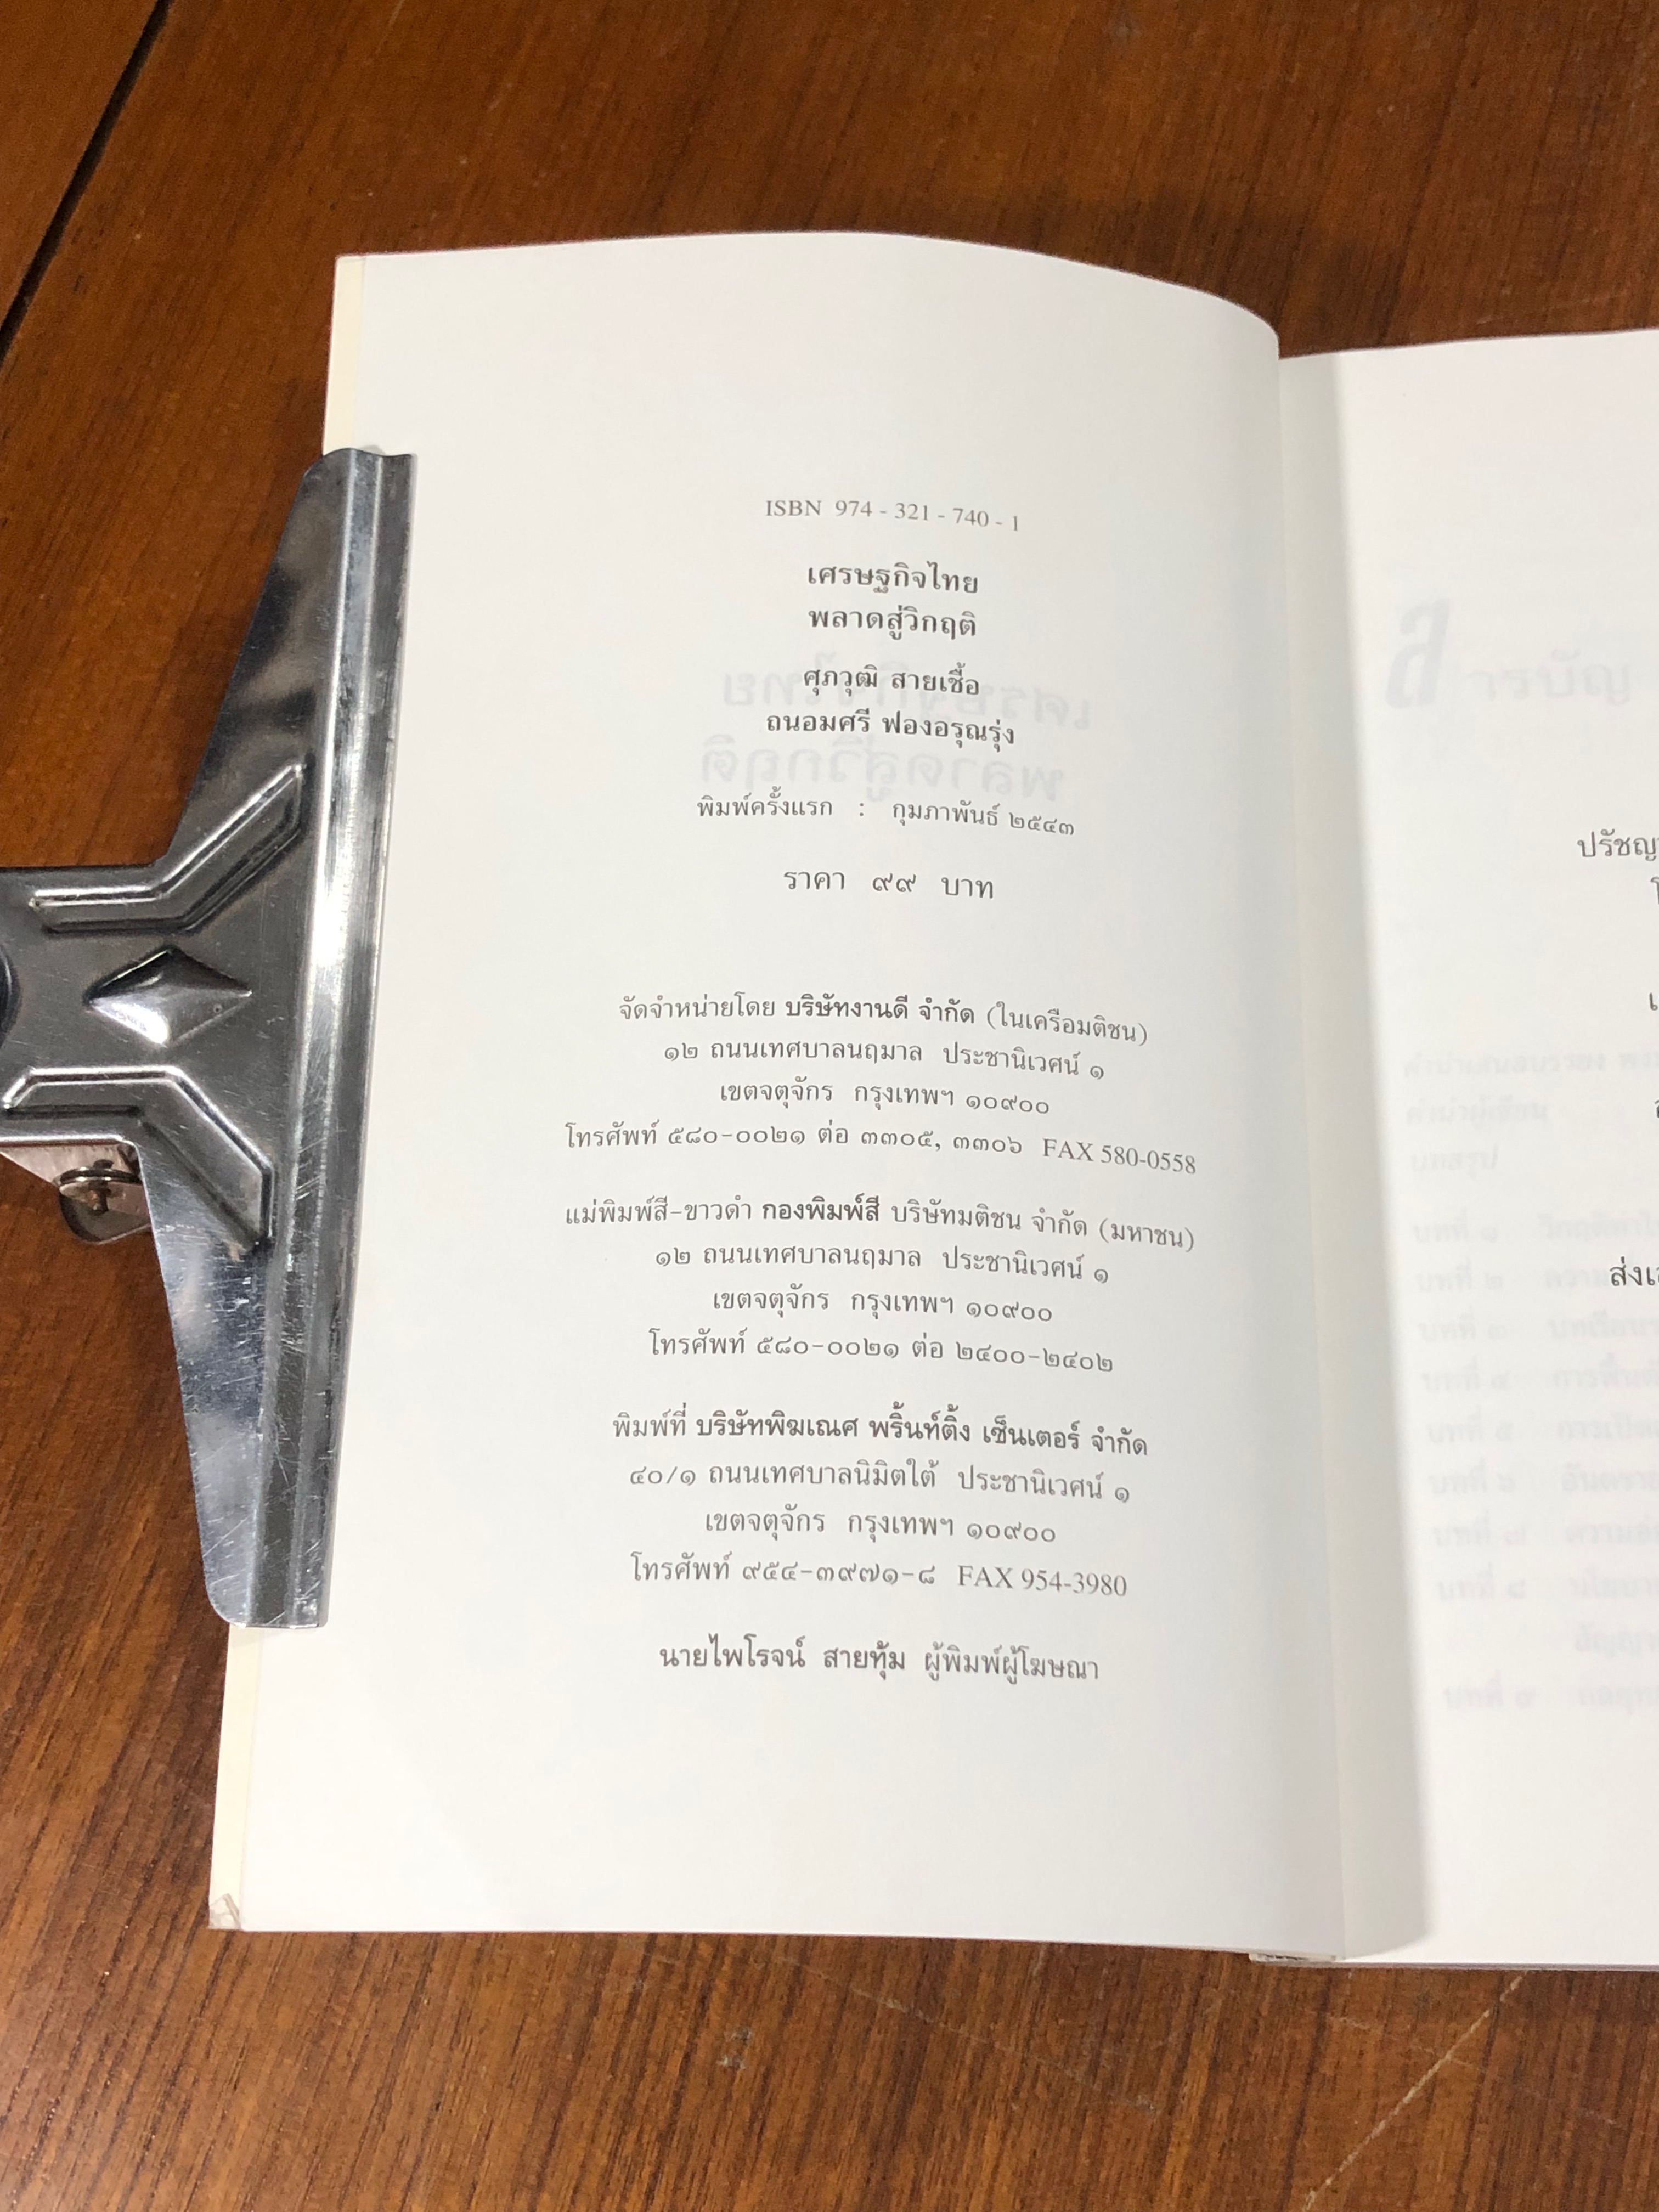 ISBN 974 - 321 - 740 - 1
เศรษฐกิจไทย
พลาดสู่วิกฤติ
ศุภวุฒิ สายเชื้อ
ถนอมศรี ฟองอรุณรุ่ง
พิมพ์ครั้งแรก : กุมภาพันธ์ ๒๕๔๓
ราคา ๙๙ บาท
จัดจำหน่ายโดย บริษัทงานดี จำกัด (ในเครือมติชน)
๑๒ ถนนเทศบาลนฤมาล ประชานิเวศน์ ๑
เขตจตุจักร กรุงเทพฯ ๑๐๙๐๐
โทรศัพท์ ๕๘๐-๐๐๒๑ ต่อ ๓๓๐๕, ๓๓๐๖ FAX 580-0558
แม่พิมพ์สี-ขาวดำ กองพิมพ์สี บริษัทมติชน จำกัด (มหาชน)
๑๒ ถนนเทศบาลนฤมาล ประชานิเวศน์ ๑
เขตจตุจักร กรุงเทพฯ ๑๐๙๐๐
โทรศัพท์ ๕๘๐-๐๐๒๑ ต่อ ๒๔๐๐-๒๔๐๒
พิมพ์ที่ บริษัทพิฆเณศ พริ้นท์ติ้ง เซ็นเตอร์ จำกัด
๔๐/๑ ถนนเทศบาลนิมิตใต้ ประชานิเวศน์ ๑
เขตจตุจักร กรุงเทพฯ ๑๐๙๐๐
โทรศัพท์ ๙๕๔-๓๙๗๑-๘ FAX 954-3980
นายไพโรจน์ สายทุ้ม ผู้พิมพ์ผู้โฆษณา